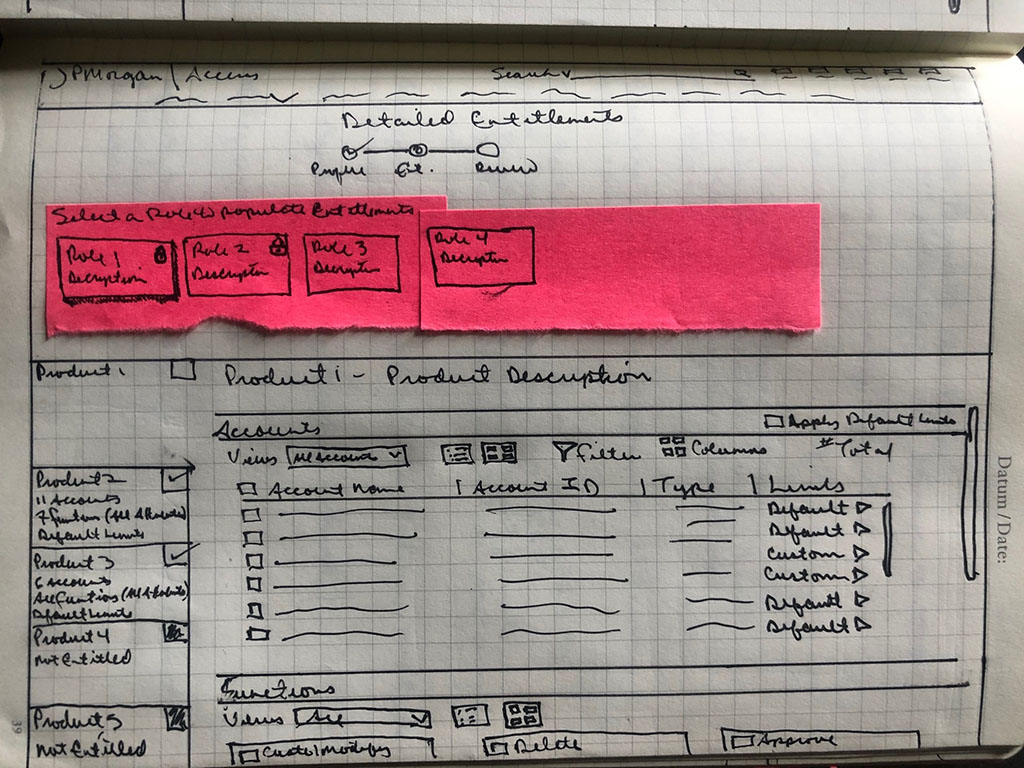 JPMorgan | Access Search
Detailed Entitlements
Profile Ent. Review
Select a Role to Populate Entitlements
Role 1
Description
Role 2
Description
Role 3
Description
Role 4
Description
Product 1
Product 1 - Product Description
Accounts
Apply Default Limits
Views All Accounts Filter Columns # Total
Account Name | Account ID | Type | Limits
Default
Default
Custom
Custom
Default
Default
Product 2
11 Accounts
7 Functions (All Attributes)
Default Limits
Product 3
6 Accounts
All Functions (All Attributes)
Default Limits
Product 4
Not Entitled
Product 5
Not Entitled
Functions
Views All
Create/Modify Delete Approve
Datum / Date:
39